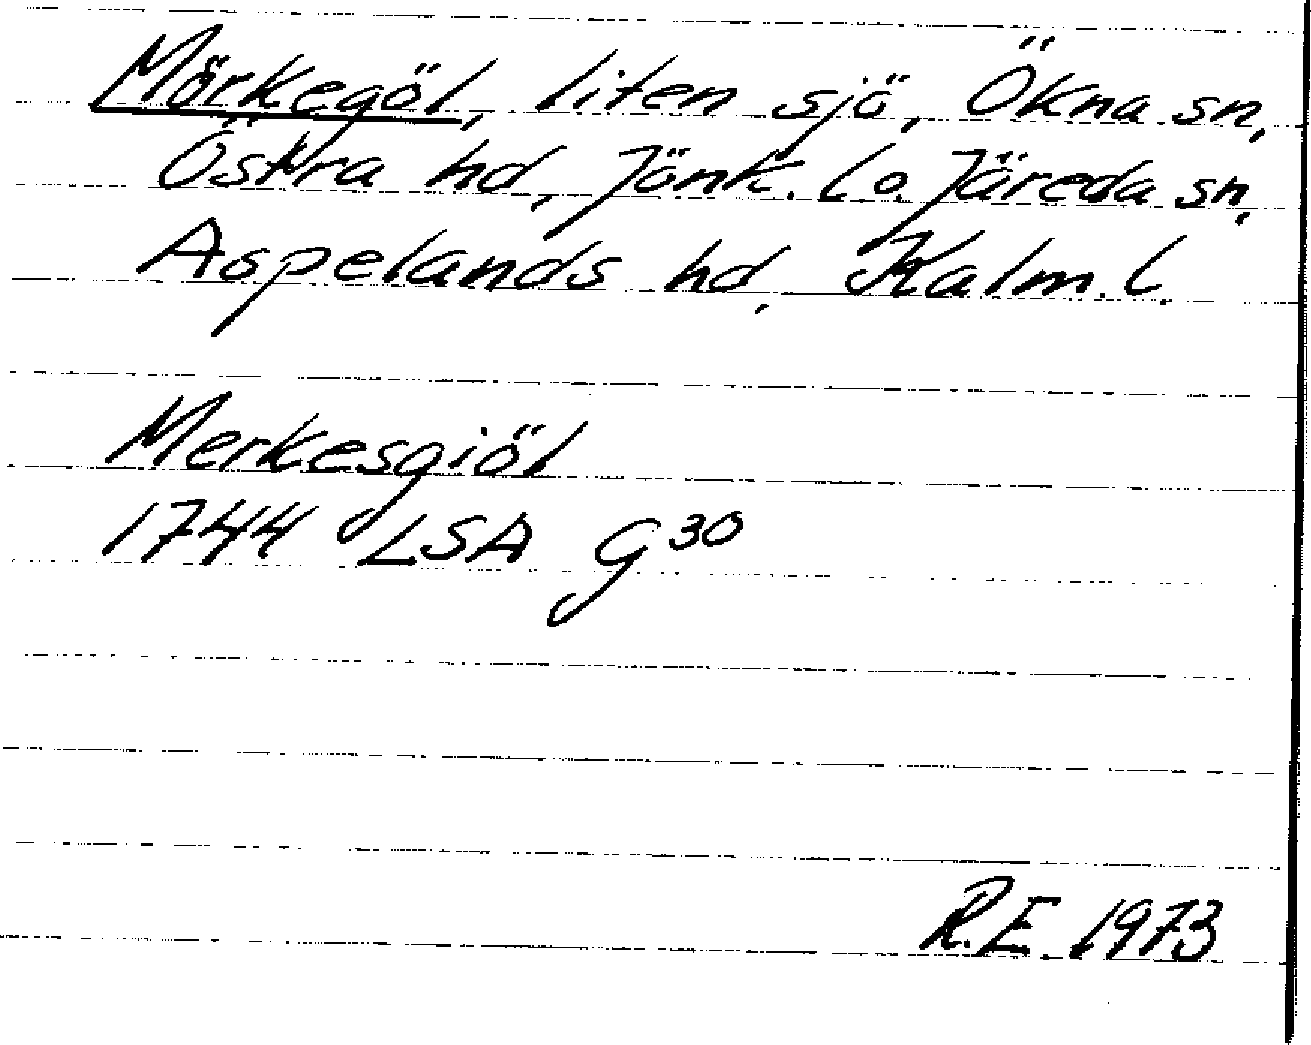 Mörkegöl, liten sjö, Ökna sn,
Östra hd, Jönk. l. o. Järeda sn,
Aspelands hd, Kalm. l.
Merkesgiöl
1744 LSA G30
R.E. 1973